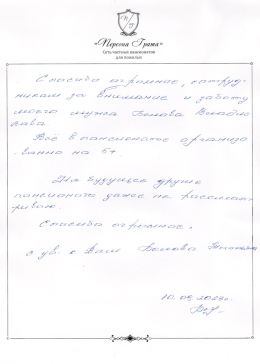 «Персона Грата»
Сеть частных пансионатов
для пожилых
Спасибо огромное, сотруд-
никам за внимание и заботу
моего мужа
Всё в пансионате организо
ванно на 5+
Для будущее другие
пансионаты даже не рассмат
риваю.
Спасибо огромное.
с ув. к Вам
10.09.2024г.